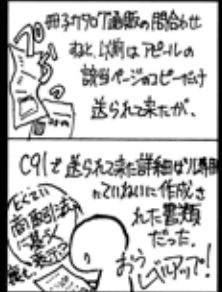 冊子カタログ通販の問合わせ
すると、以前はアピールの
該当ページのコピーだけ
送られて来たが、
C91で送られて来た詳細は
ていねいに作成さ
れた書類
だった。
とくてい
商取引法
に基づく
表示
おぅ
レベルアップ!